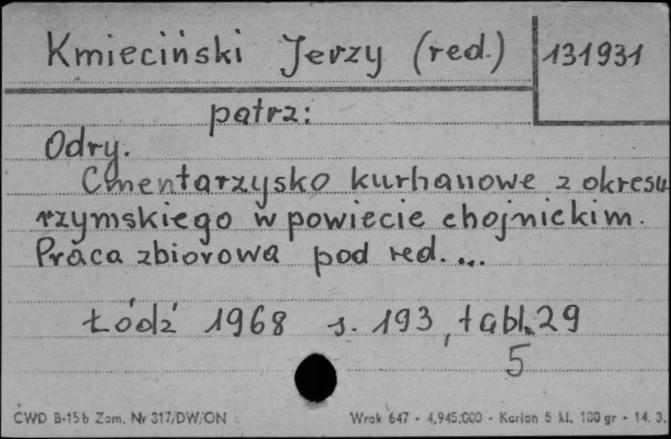 Kmieciński Jerzy (red.) 131931
patrz:
Odry.
Cmentarzysko kurhanowe z okresu
rzymskiego w powiecie chojnickim.
Praca zbiorowa pod red. ...
Łódź 1968 s. 193, tabl. 29
5
CWD B-15b Zam. Nr 317/DW/ON Wrok 647 - 4,945.000 - Karton 5 kl. 180 gr - 14. 3.